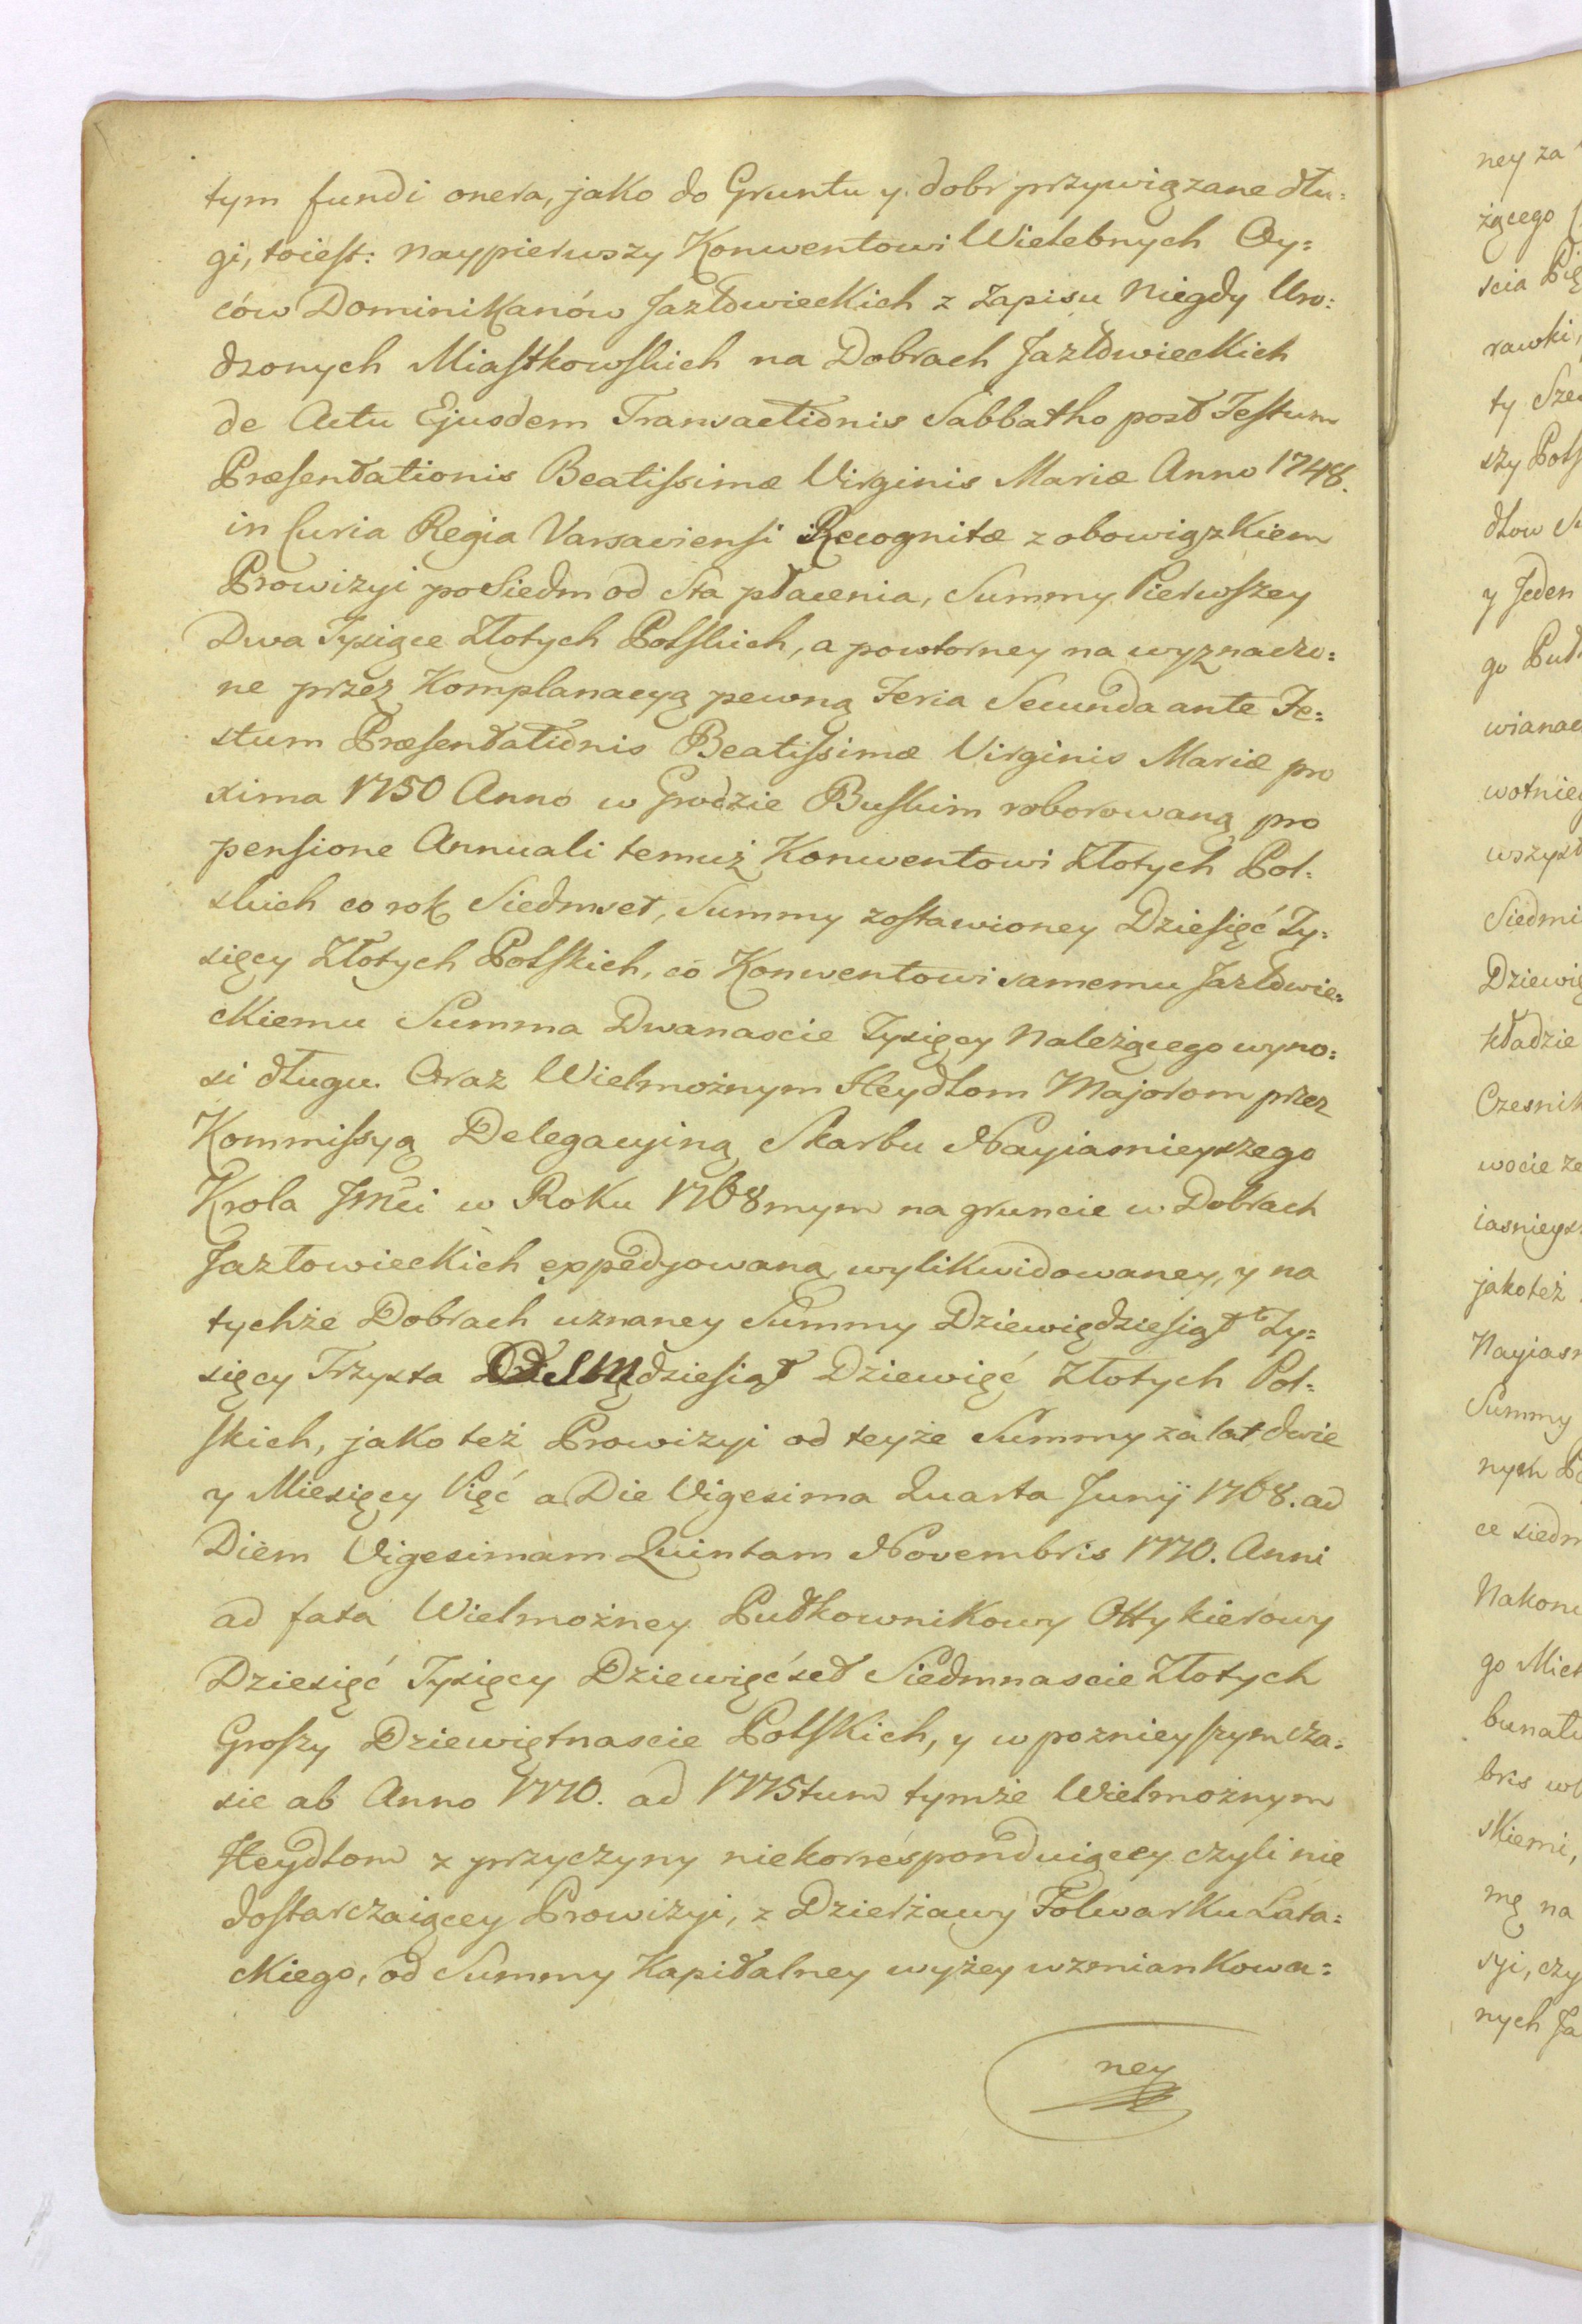 tym fundi onera, jako do Gruntu y dobr przywiązane dłu=
gi, toiest: naypierwszy Konwentowi Wielebnych Oy=
ców Dominikanów Jazłowieckich z zapisu niegdy Uro=
dzonych Miastkowskich na Dobrach Jazłowieckich
de Actu Ejusdem Transactionis Sabbatho post Festum
Præsentationis Beatissimæ Virginis Mariæ Anno 1748.
in Curia Regia Varsaviensi Recognitæ z obowiązkiem
Prowizyi po Siedm od Sta płacenia, Summy Pierwszey
Dwa Tysiące Złotych Polskich, a powtorney na wyznaczo=
ne przez Komplanacyą pewną Feria Secunda ante Fe=
stum Præsentationis Beatissimæ Virginis Mariæ pro
xima 1750 Anno w Grodzie Buskim roborowaną pro
pensione Annuali temuż Konwentowi Złotych Pol=
skich co rok Siedmset, Summy zostawioney Dziesięć Ty=
sięcy Złotych Polskich, co Konwentowi samemu Jazłowie=
ckiemu Summa Dwanascie Tysięcy należącego wyno=
si długu. Oraz Wielmożnym Heydlom Majorom przez
Kommissyą Delegacyiną Skarbu Nayiasnieyszego
Krola Jmci w Roku 1768mym na gruncie w Dobrach
Jazłowieckich expedyowaną, wylikwidowaney, y na
tychże Dobrach uznaney Summy Dziewiędziesiąt Ty=
sięcy Trzysta Osmdziesiąt Dziewięć Złotych Pol=
skich, jako też Prowizyi od teyże Summy za lat dwie
y Miesięcy Pięć a Die Vigesima Quarta Junij 1768. ad
Diem Vigesimam Quintam Novembris 1770. Anni
ad fata Wielmożney Pułkownikowy Ottykierowy
Dziesięć Tysięcy Dziewięćset Siedmnascie Złotych
Groszy Dziewiętnascie Polskich, y w poznieyszym cza=
sie ab Anno 1770. ad 1775tum tymże Wielmożnym
Heydlom z przyczyny niekorrespondujący czyli nie
dostarczaiącey Prowizyi, z Dzierżawy Folwarku Lata=
ckiego, od Summy Kapitalney wyżey wzmiankowa=
ney